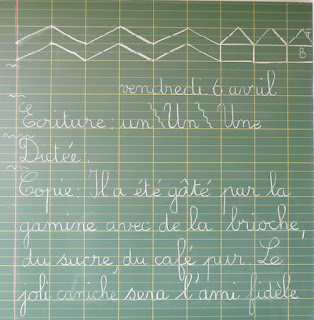 B
vendredi 6 avril
Ecriture: un Un Une
Dictée.
Copie: Il a été gâté par la
gamine avec de la brioche,
du sucre, du café pur. Le
joli caniche sera l'ami fidèle